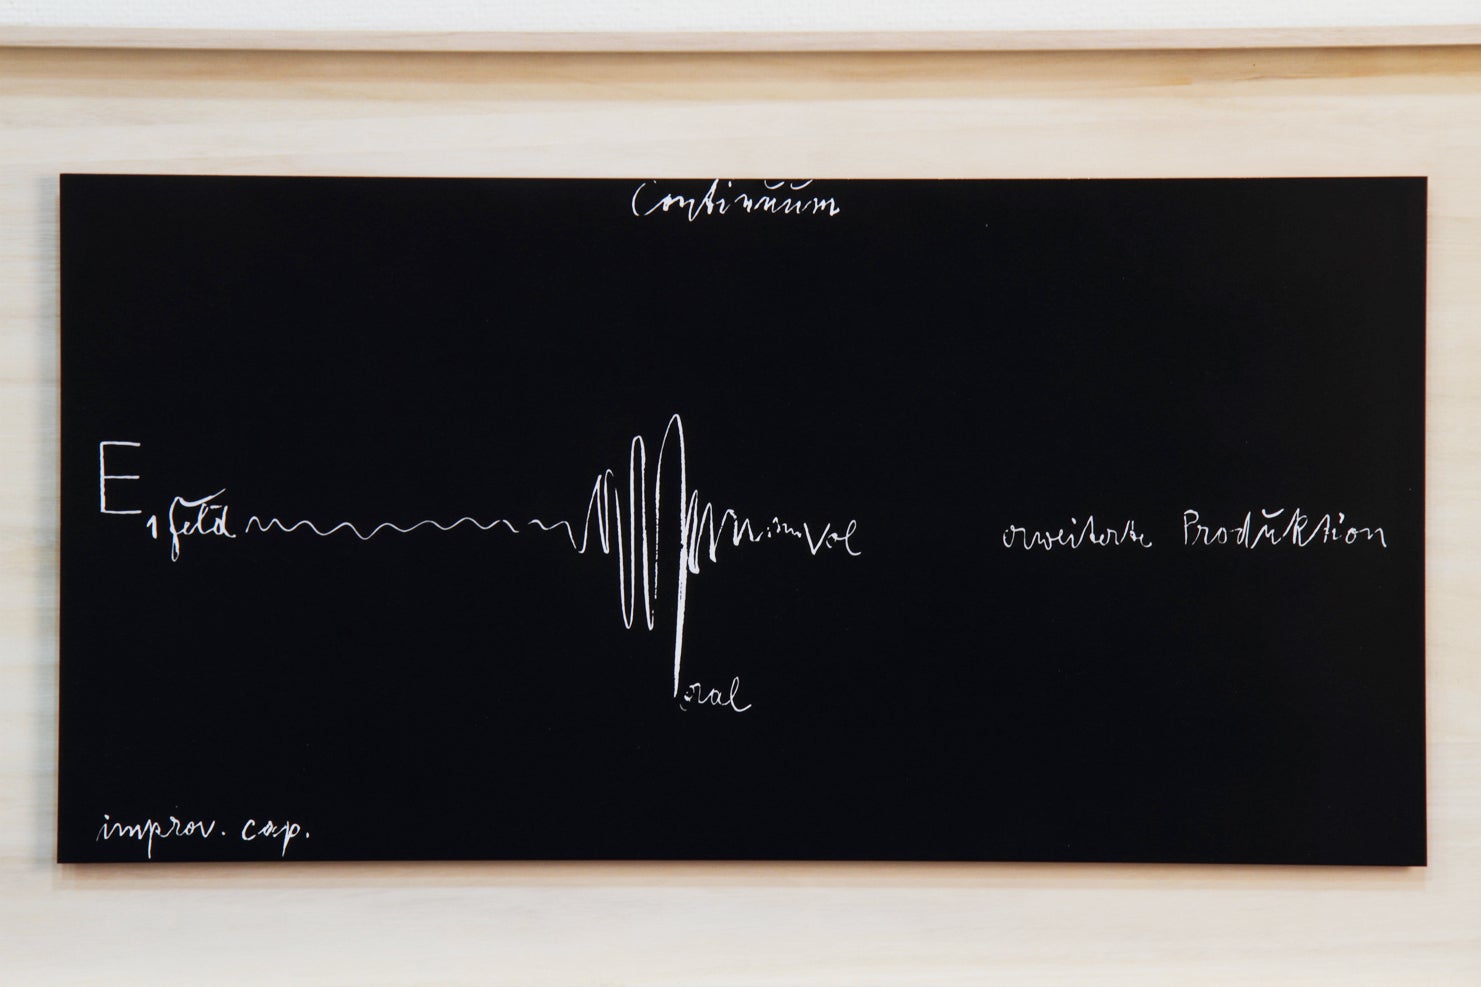 Continuum
E
1 feld
im Vol
erweiterte Produktion
oral
improv. cap.